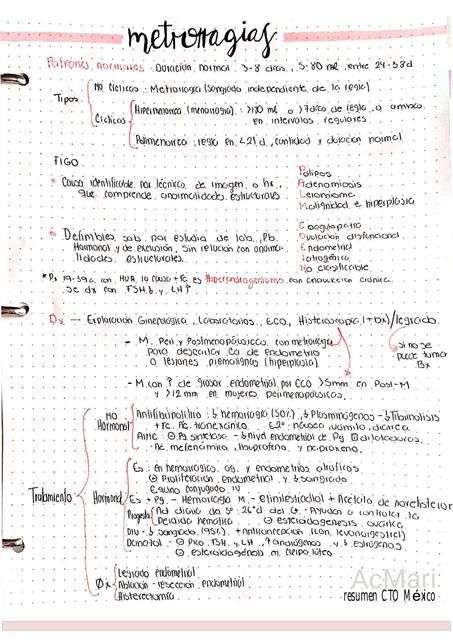 metrorragias
Patrones normales: Duración normal 3-8 días, 5-80 ml, entre 24-38d
Tipos
No Cíclicos: Metrorragia (Sangrado independiente de la regla)
Cíclicos
Hipermenorrea (menorragia): >80 ml o >7días de regla, o ambos
en intervalos regulares
Polimenorrea: regla en <21 d, cantidad y duración normal
FIGO
• Causa identificable por técnicas de imagen o hx,
que comprende anormalidades estructurales
Pólipos
Adenomiosis
Leiomioma
Malignidad e hiperplasia
• Definibles sob. por estudio de labs, Pb.
Hormonal y de exclusión, Sin relación con anoma-
lidades estructurales.
Coagulopatía
Ovulación disfuncional
Endometrial
Iatrogénica
No clasificable
* Px 19-39a con HUA la causa + Fc es Hiperandrogenismo con anovulación crónica.
Se dx con FSH, b y LH↑
Dx → Exploración Ginecológica, Laboratorios, ECO, Histeroscopia (+Dx)/legrado
- M. Peri y Postmenopáusica, con metrorragia
para descartar Ca de endometrio
o lesiones premalignas (hiperplasia)
si no se
puede tomar
Bx
- M con ↑ de grosor endometrial por ECO >5mm en Post-M
y >12 mm en mujeres perimenopáusicas.
Tratamiento
No
Hormonal
Antifibrinolítico: ↓ hemorragia (50%), ↓ Plasminógenos - ↓ Fibrinólisis
+ Fc. Ac. tranexámico. E2°: náusea, vómito, diarrea.
AINE: ⊖ Pg sintetasa - ↓ nivel endometrial de Pg
Ac. mefenámico, ibuprofeno, y naproxeno.
Hormonal
Es: en hemorragia ag. y endometrios atróficos
Proliferación endometrial y ↓ sangrado
Equino conjugado IV
Es + Pg. - Hemorragia M. - etinilestradiol + Acetato de noretisterona
Progesta
Ad diario da 5°-26°d del C. - Ayudan a controlar la
Perdida hemática. ⊖ esteroidogénesis ovárica
DIU - ↓ sangrado (95%) + Anticoncepción (con levonorgestrel)
Danazol - ⊖ Pico FSH y LH, ↑ andrógenos y ↓ estrógenos,
⊖ esteroidogénesis en cuerpo lúteo
Qx
Legrado endometrial
Ablación - resección endometrial
Histerectomía
AcMari
resumen CTO México